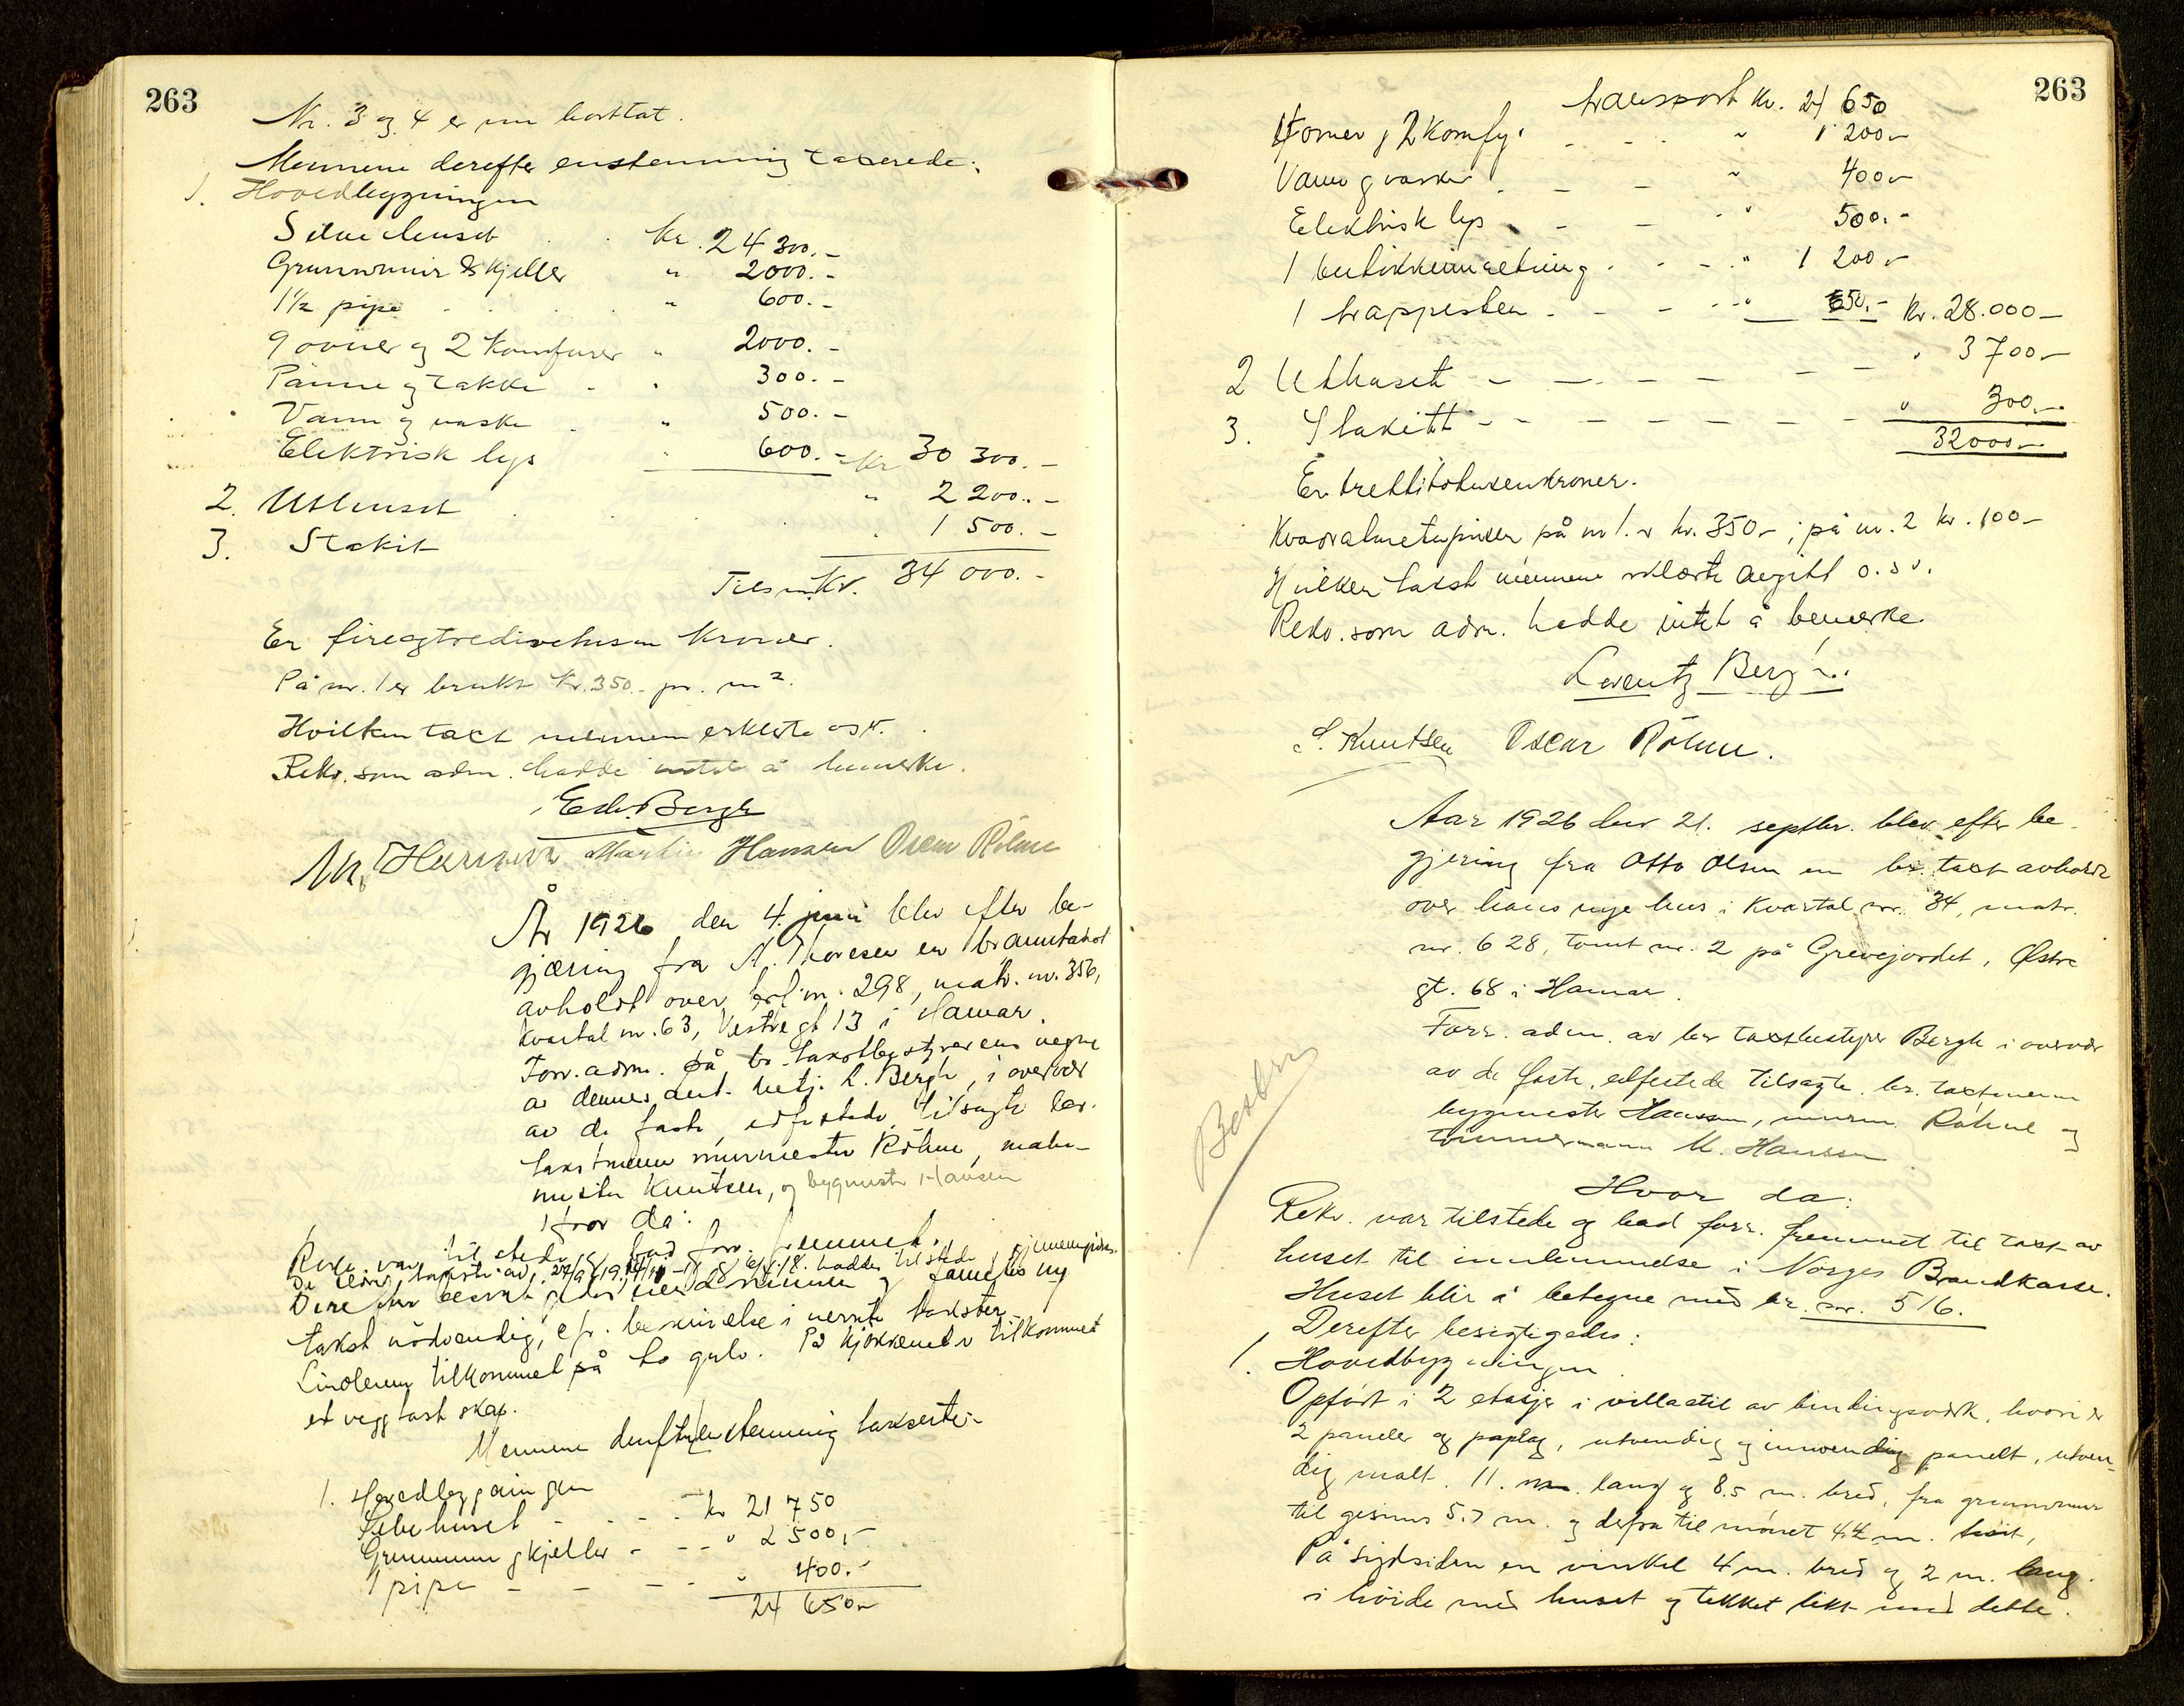 263
Nr. 3 og 4 er nu borttat.
Mennene derefter enstemmig taxerede:
1. Hovedbygningen
Selve huset kr. 24 300.-
Grunnmur & kjeller " 2000.-
1½ pipe " 600.-
9 ovner og 2 komfurer " 2000.-
Panne og takke " 300.-
Vann og vaske " 500.-
Elektrisk lys " 600.- kr 30 300.-
2. Uthuset " 2 200.-
3. Stakit " 1 500.-
Tilsm. Kr. 34 000.-
Er fireogtredivetusen kroner.
På nr. 1 er brukt kr. 350.- pr. m².
Hvilken taxt mennene erklærte osv.
Rekv. som adm. hadde intet å bemerke.
Edv. Bergh
Martin Hansen Oscar Röhne
År 1926 den 4. juni blev efter be-
gjæring fra A. Thoresen en branntakst
avholdt over br. nr. 298, matr. nr. 356,
kvartal nr. 63, Vestregt 13 i Hamar.
Forr. adm. på br. takstbestyrerens vegne
av dennes aut. betj. L. Bergh, i overvær
av de faste, edfestede tilsagte br.
takstmenn murmester Röhne, maler-
mester Knutsen, og bygmester Hansen
Hvor da:
Rekv. var tilstede og bad forr. fremmet.
De eldre takster av 27/9 19, hadde tilstede gjennemgåes.
Derefter besigtigedes eiendommen og fandtes ny
takst nödvendig, efr. beskrivelse i nevnte takster.
Linoleum tilkommet på to gulv. På kjökkenet er tilkommet
et veggfast skap.
Mennene derefter enstemmig takserte:
1. Hovedbygningen
Selve huset - - - kr 21 750
Grunnmur og kjeller - - - " 2 500,-
1 pipe - - - - " 400.-
24 650.-
263
transport kr. 24 650
ovner og 2 komfyr - - - " 1 200.-
Vann og vasker - - - " 400.-
Elektrisk lys - - - " 500.-
1 butikkinnretning - - - " 1 200.-
1 trappesten - - - " 50.- kr. 28.000-
2 Uthuset - - - - - - " 3 700-
3. Stakitt - - - - - - " 300.-
32000-
Er trettitotusenkroner.
Kvadratmeterprisen på nr 1. er kr. 350-; på nr. 2 kr. 100-
Hvilken takst mennene erklærte avgitt o.s.v.
Rekv. som adm. hadde intet å bemerke
Lorentz Bergh.
S. Knutsen Oscar Röhne.
Aar 1926 den 21. septbr. blev efter be-
gjering fra Otto Olsen en br. taxt avholdt
over hans nye hus i Kvartal nr. 34, matr.
nr. 628, tomt nr. 2 på Grevejordet, Østre
gt. 68 i Hamar.
Forr. adm. av br taxtbestyrer Bergh i overvær
av de faste, edfestede tilsagte br. taxtmenn
bygmester Hanssen, murm. Röhne og
tømmermann M. Hanssen
Hvor da:
Rekv. var tilstede og bad forr. fremmet til taxt av
huset til innlemmelse i Norges Brandkasse.
Huset blir å betegne med br. nr. 516.
Derefter besigtigedes:
1. Hovedbygningen
Opfört i 2 etasjer i villastil av bindingsverk, hvori er
2 paneler og paplag, utvendig og innvendig panelt, utven-
dig malt. 11. m. lang og 8.5 m. bred, fra grunnmur
til gesims 5.7 m. og derfra til mönet 4.4 m.
På sydsiden en vinkel 4 m. bred og 2 m. lang.
i höide med huset og tekket likt med dette.